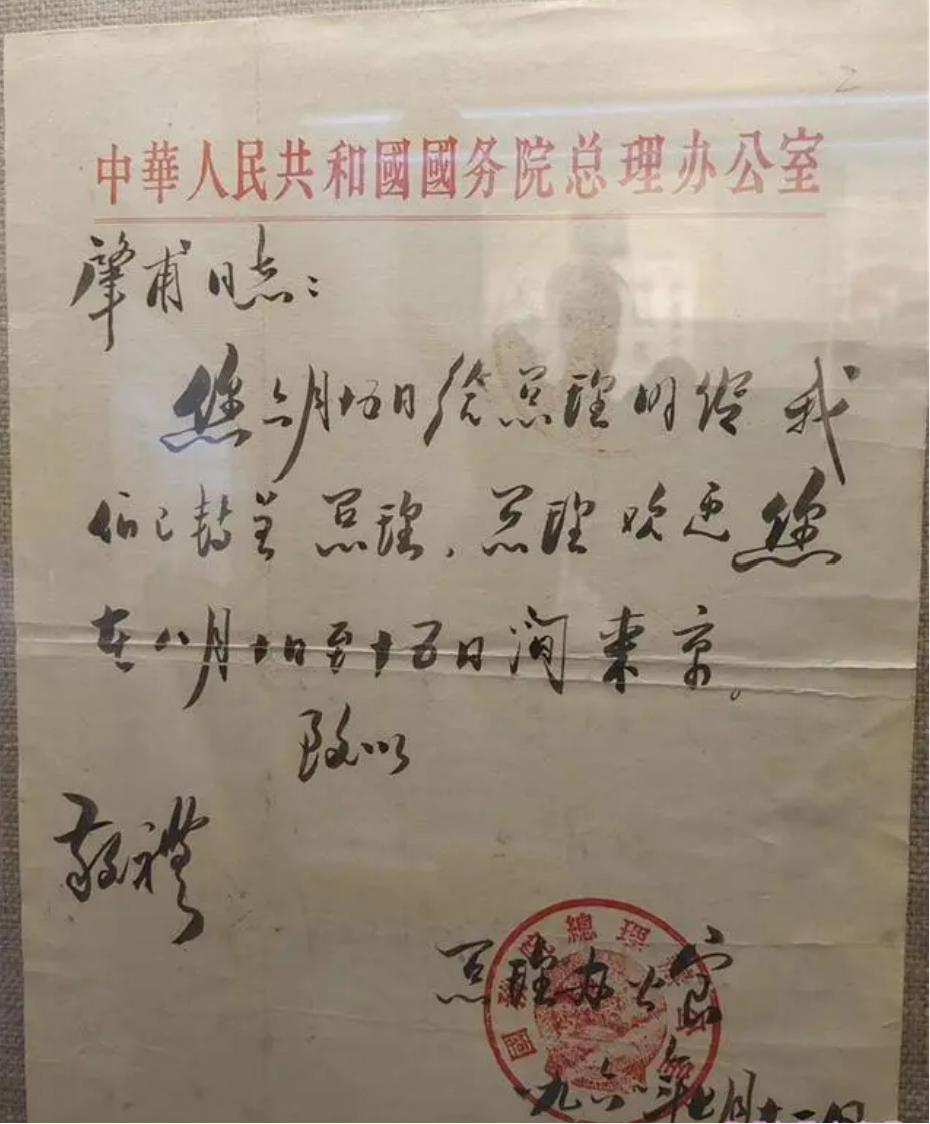 中華人民共和國國务院总理办公室
肇甫同志：
您六月廿五日给总理的信我
们已转呈总理，总理欢迎您
在八月十日至十五日间来京。
致以
敬礼
总理办公室
一九六一年七月十二日